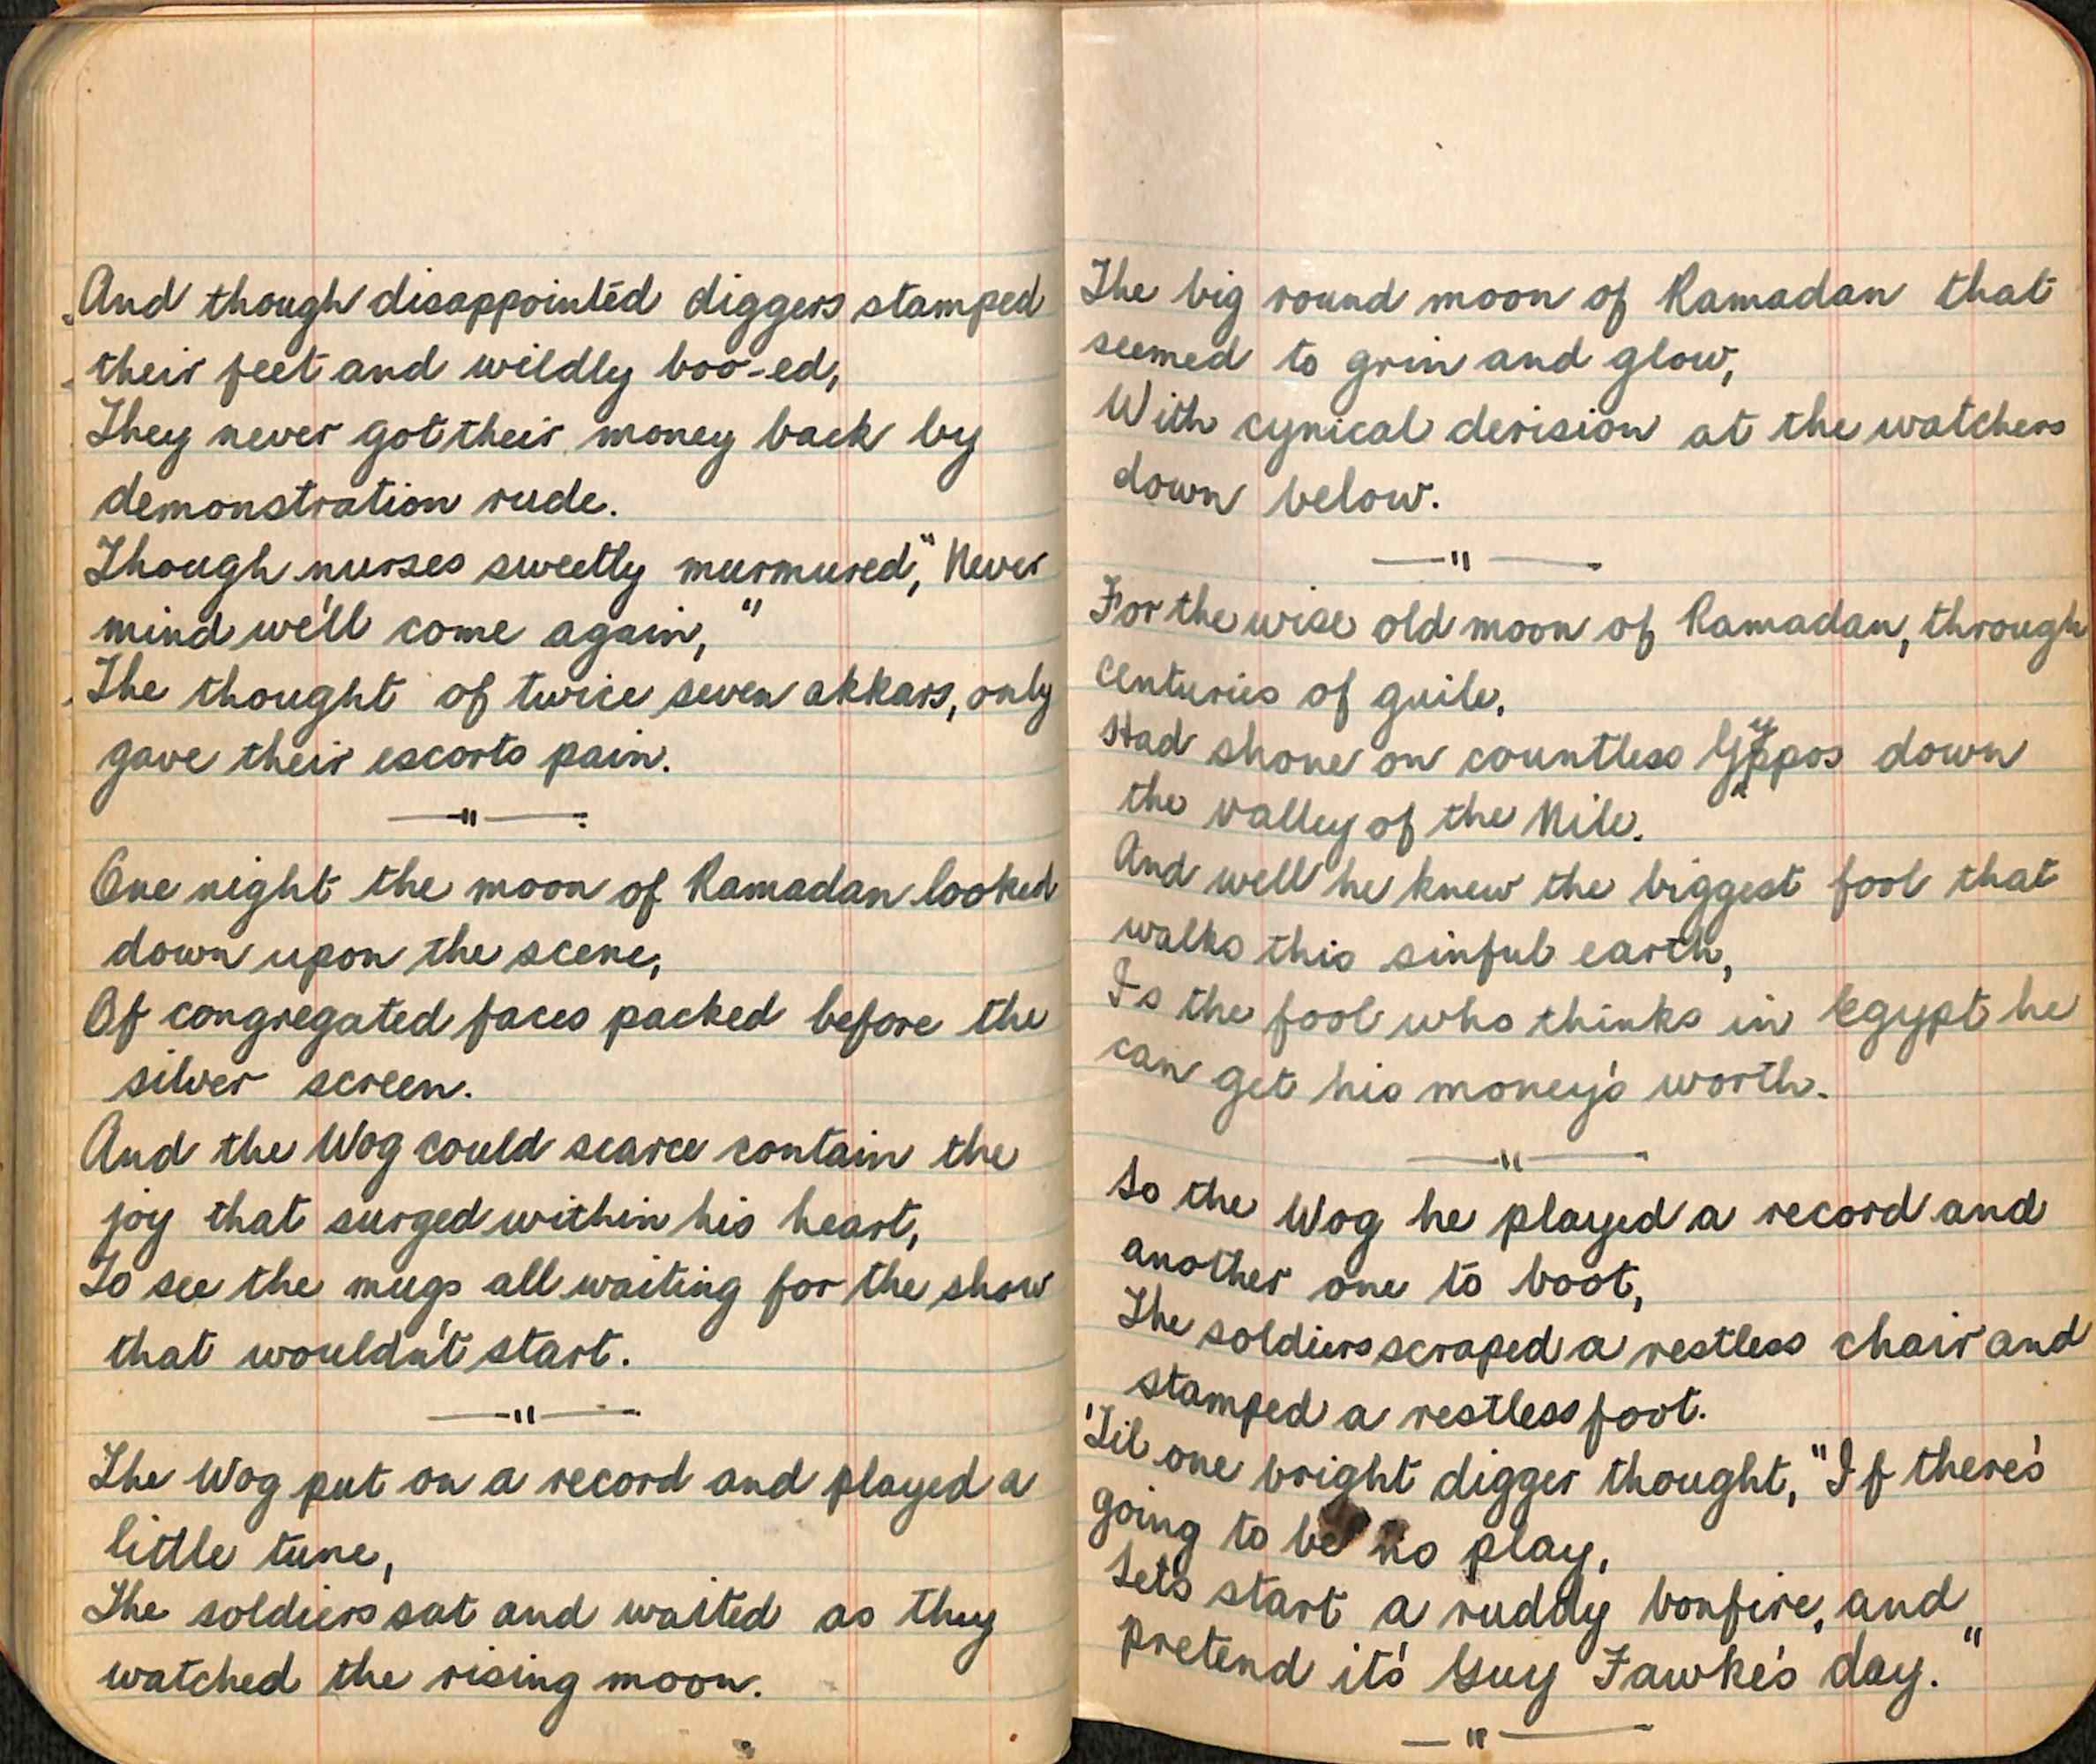 And though disappointed diggers stamped
their feet and wildly boo-ed,
They never got their money back by
demonstration rude.
Though nurses sweetly murmured, "Never
mind we'll come again,"
The thought of twice seven akkars, only
gave their escorts pain.
—"—
One night the moon of Ramadan looked
down upon the scene,
Of congregated faces packed before the
silver screen.
And the Wog could scarce contain the
joy that surged within his heart,
To see the mugs all waiting for the show
that wouldn't start.
—"—
The Wog put on a record and played a
little tune,
The soldiers sat and waited as they
watched the rising moon.
The big round moon of Ramadan that
seemed to grin and glow,
With cynical derision at the watchers
down below.
—"—
For the wise old moon of Ramadan, through
centuries of guile,
Had shone on countless Gyppos down
the valley of the Nile.
And well he knew the biggest fool that
walks this sinful earth,
Is the fool who thinks in Egypt he
can get his money's worth.
—"—
So the Wog he played a record and
another one to boot,
The soldiers scraped a restless chair and
stamped a restless foot.
'Til one bright digger thought, "If there's
going to be no play,
Let's start a ruddy bonfire, and
pretend it's Guy Fawke's day."
—"—